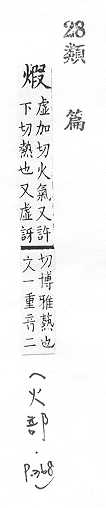 28 類篇
煆
虛加切火氣又許
下切熱也又虛訝
切博雅熱也
文一重音二
(火部.
P.368)